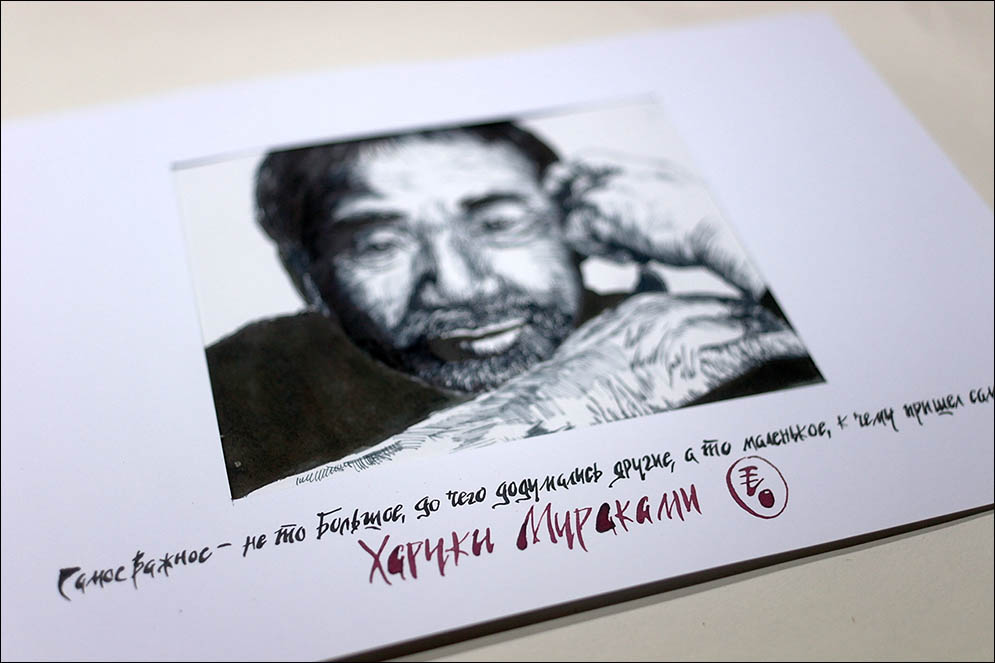 Самое важное – не то Большое, до чего додумались другие, а то маленькое, к чему пришел сам
Харуки Мураками